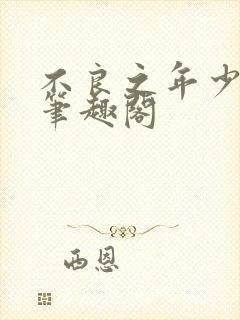 不良之年少
筆趣閣
西恩